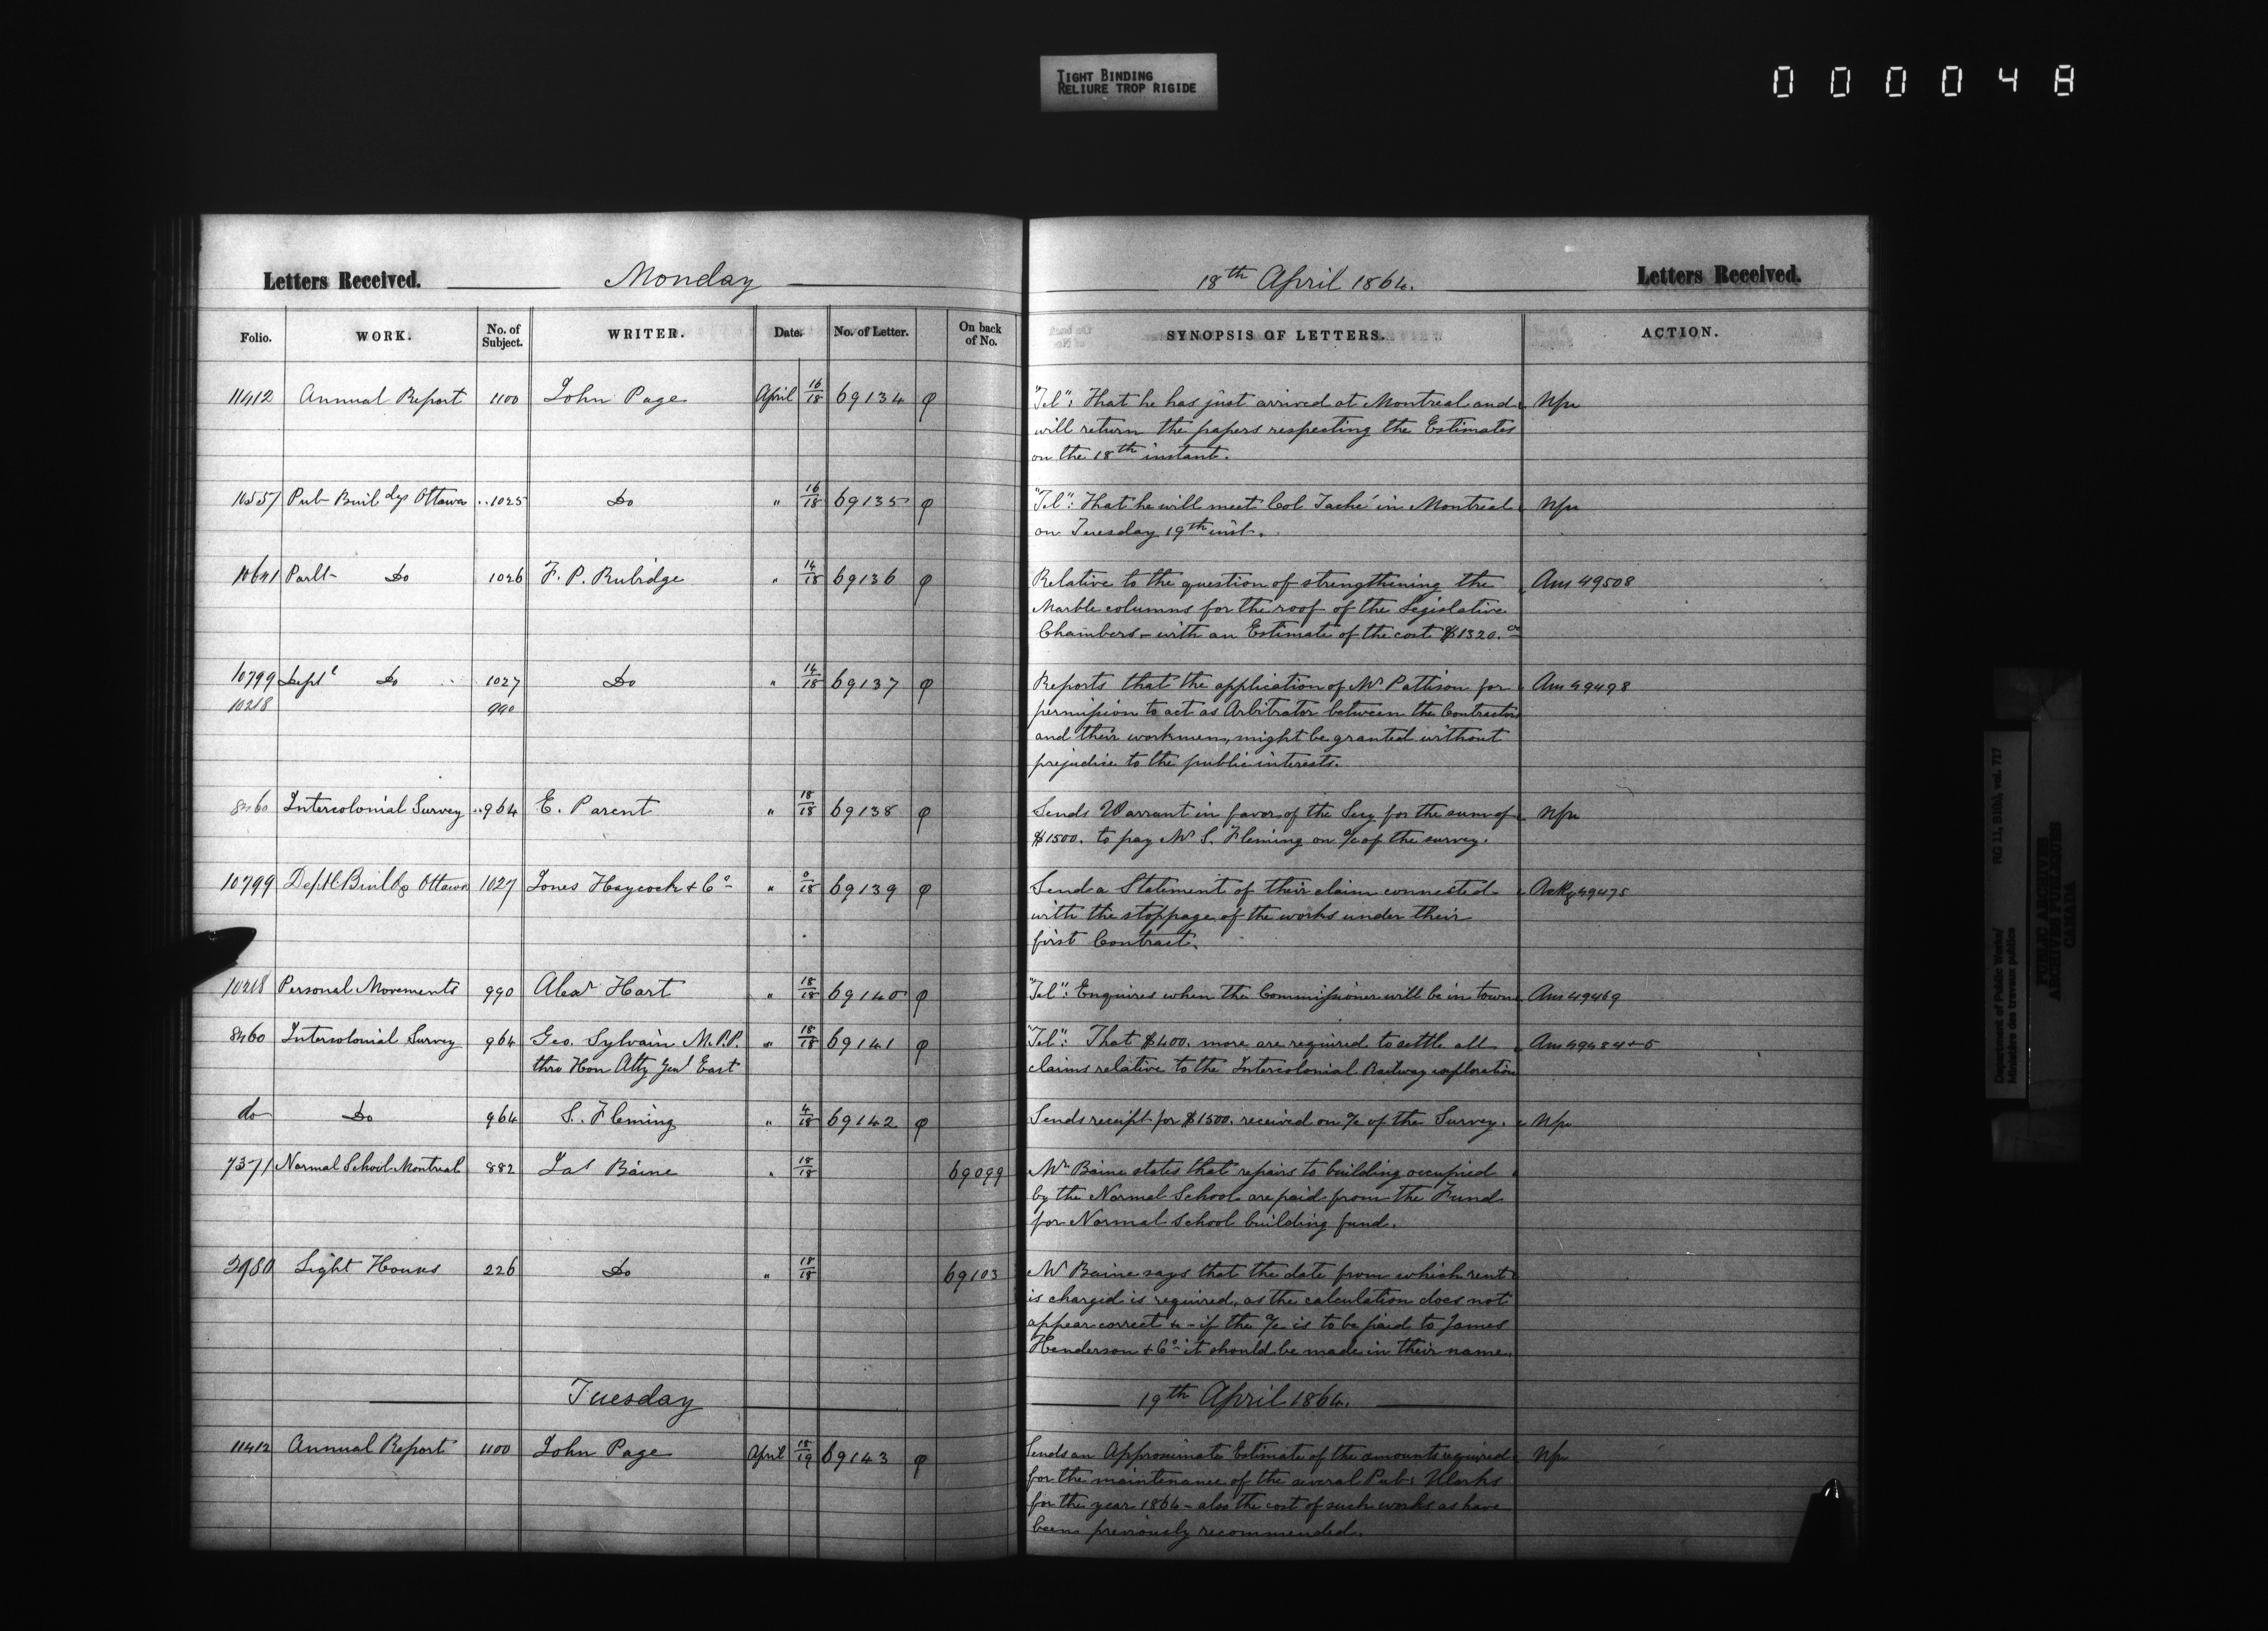 TIGHT BINDING
RELIURE TROP RIGIDE
000048
Letters Received. Monday
18th April 1864. Letters Received.
Folio. WORK. No. of Subject. WRITER. Date. No. of Letter. On back of No.
SYNOPSIS OF LETTERS. ACTION.
11412 Annual Report 1100 John Page April 16/18 69134 φ
"Tel": That he has just arrived at Montreal and Npr
will return the papers respecting the Estimates
on the 18th instant.
10557 Pub Buildgs Ottawa 1025 Do " 16/18 69135 φ
"Tel": That he will meet Col Taché in Montreal Npr
on Tuesday 19th inst.
10641 Parlt Do 1026 F. P. Rubidge " 14/18 69136 φ
Relative to the question of strengthening the Ans 49508
Marble columns for the roof of the Legislative
Chambers – with an Estimate of the cost $1320.00
10799 Deptl Do 1027 Do " 14/18 69137 φ
10218 990
Reports that the application of Mr Pattison for Ans 49498
permission to act as Arbitrator between the Contractors
and their workmen, might be granted without
prejudice to the public interests.
8460 Intercolonial Survey 964 E. Parent " 18/18 69138 φ
Sends Warrant in favor of the Secy for the sum of Npr
$1500. to pay Mr S. Fleming on a/c of the survey.
10799 Deptl Buildg Ottawa 1027 Jones Haycock & Co " 0/18 69139 φ
Send a Statement of their claim connected 49475
with the stoppage of the works under their
first Contract.
10218 Personal Movements 990 Alexr Hart " 18/18 69140 φ
"Tel": Enquires when the Commissioner will be in town Ans 49469
8460 Intercolonial Survey 964 Geo. Sylvain M.P.P. " 18/18 69141 φ
thro Hon Atty Genl East
"Tel": That $400. more are required to settle all Ans 49484+5
claims relative to the Intercolonial Railway exploration
do Do 964 S. Fleming " 4/18 69142 φ
Sends receipt for $1500. received on a/c of the Survey. Npr
7371 Normal School Montreal 882 Jas Baine " 18/18 69099
Mr Baine states that repairs to building occupied
by the Normal School are paid from the Fund
for Normal School building fund.
Light Houses 226 Do " 18/18 69103
Mr Baine says that the date from which rent
is charged is required, as the calculation does not
appear correct & – if the a/c is to be paid to James
Henderson & Co it should be made in their name.
Tuesday
19th April 1864.
11412 Annual Report 1100 John Page April 18/19 69143 φ
Sends an Approximate Estimate of the amounts required Npr
for the maintenance of the several Pub: Works
for the year 1864 – also the cost of such works as have
been previously recommended.
Department of Public Works/ RG 11, B1(b), vol. 717
Ministère des travaux publics
PUBLIC ARCHIVES
ARCHIVES PUBLIQUES
CANADA